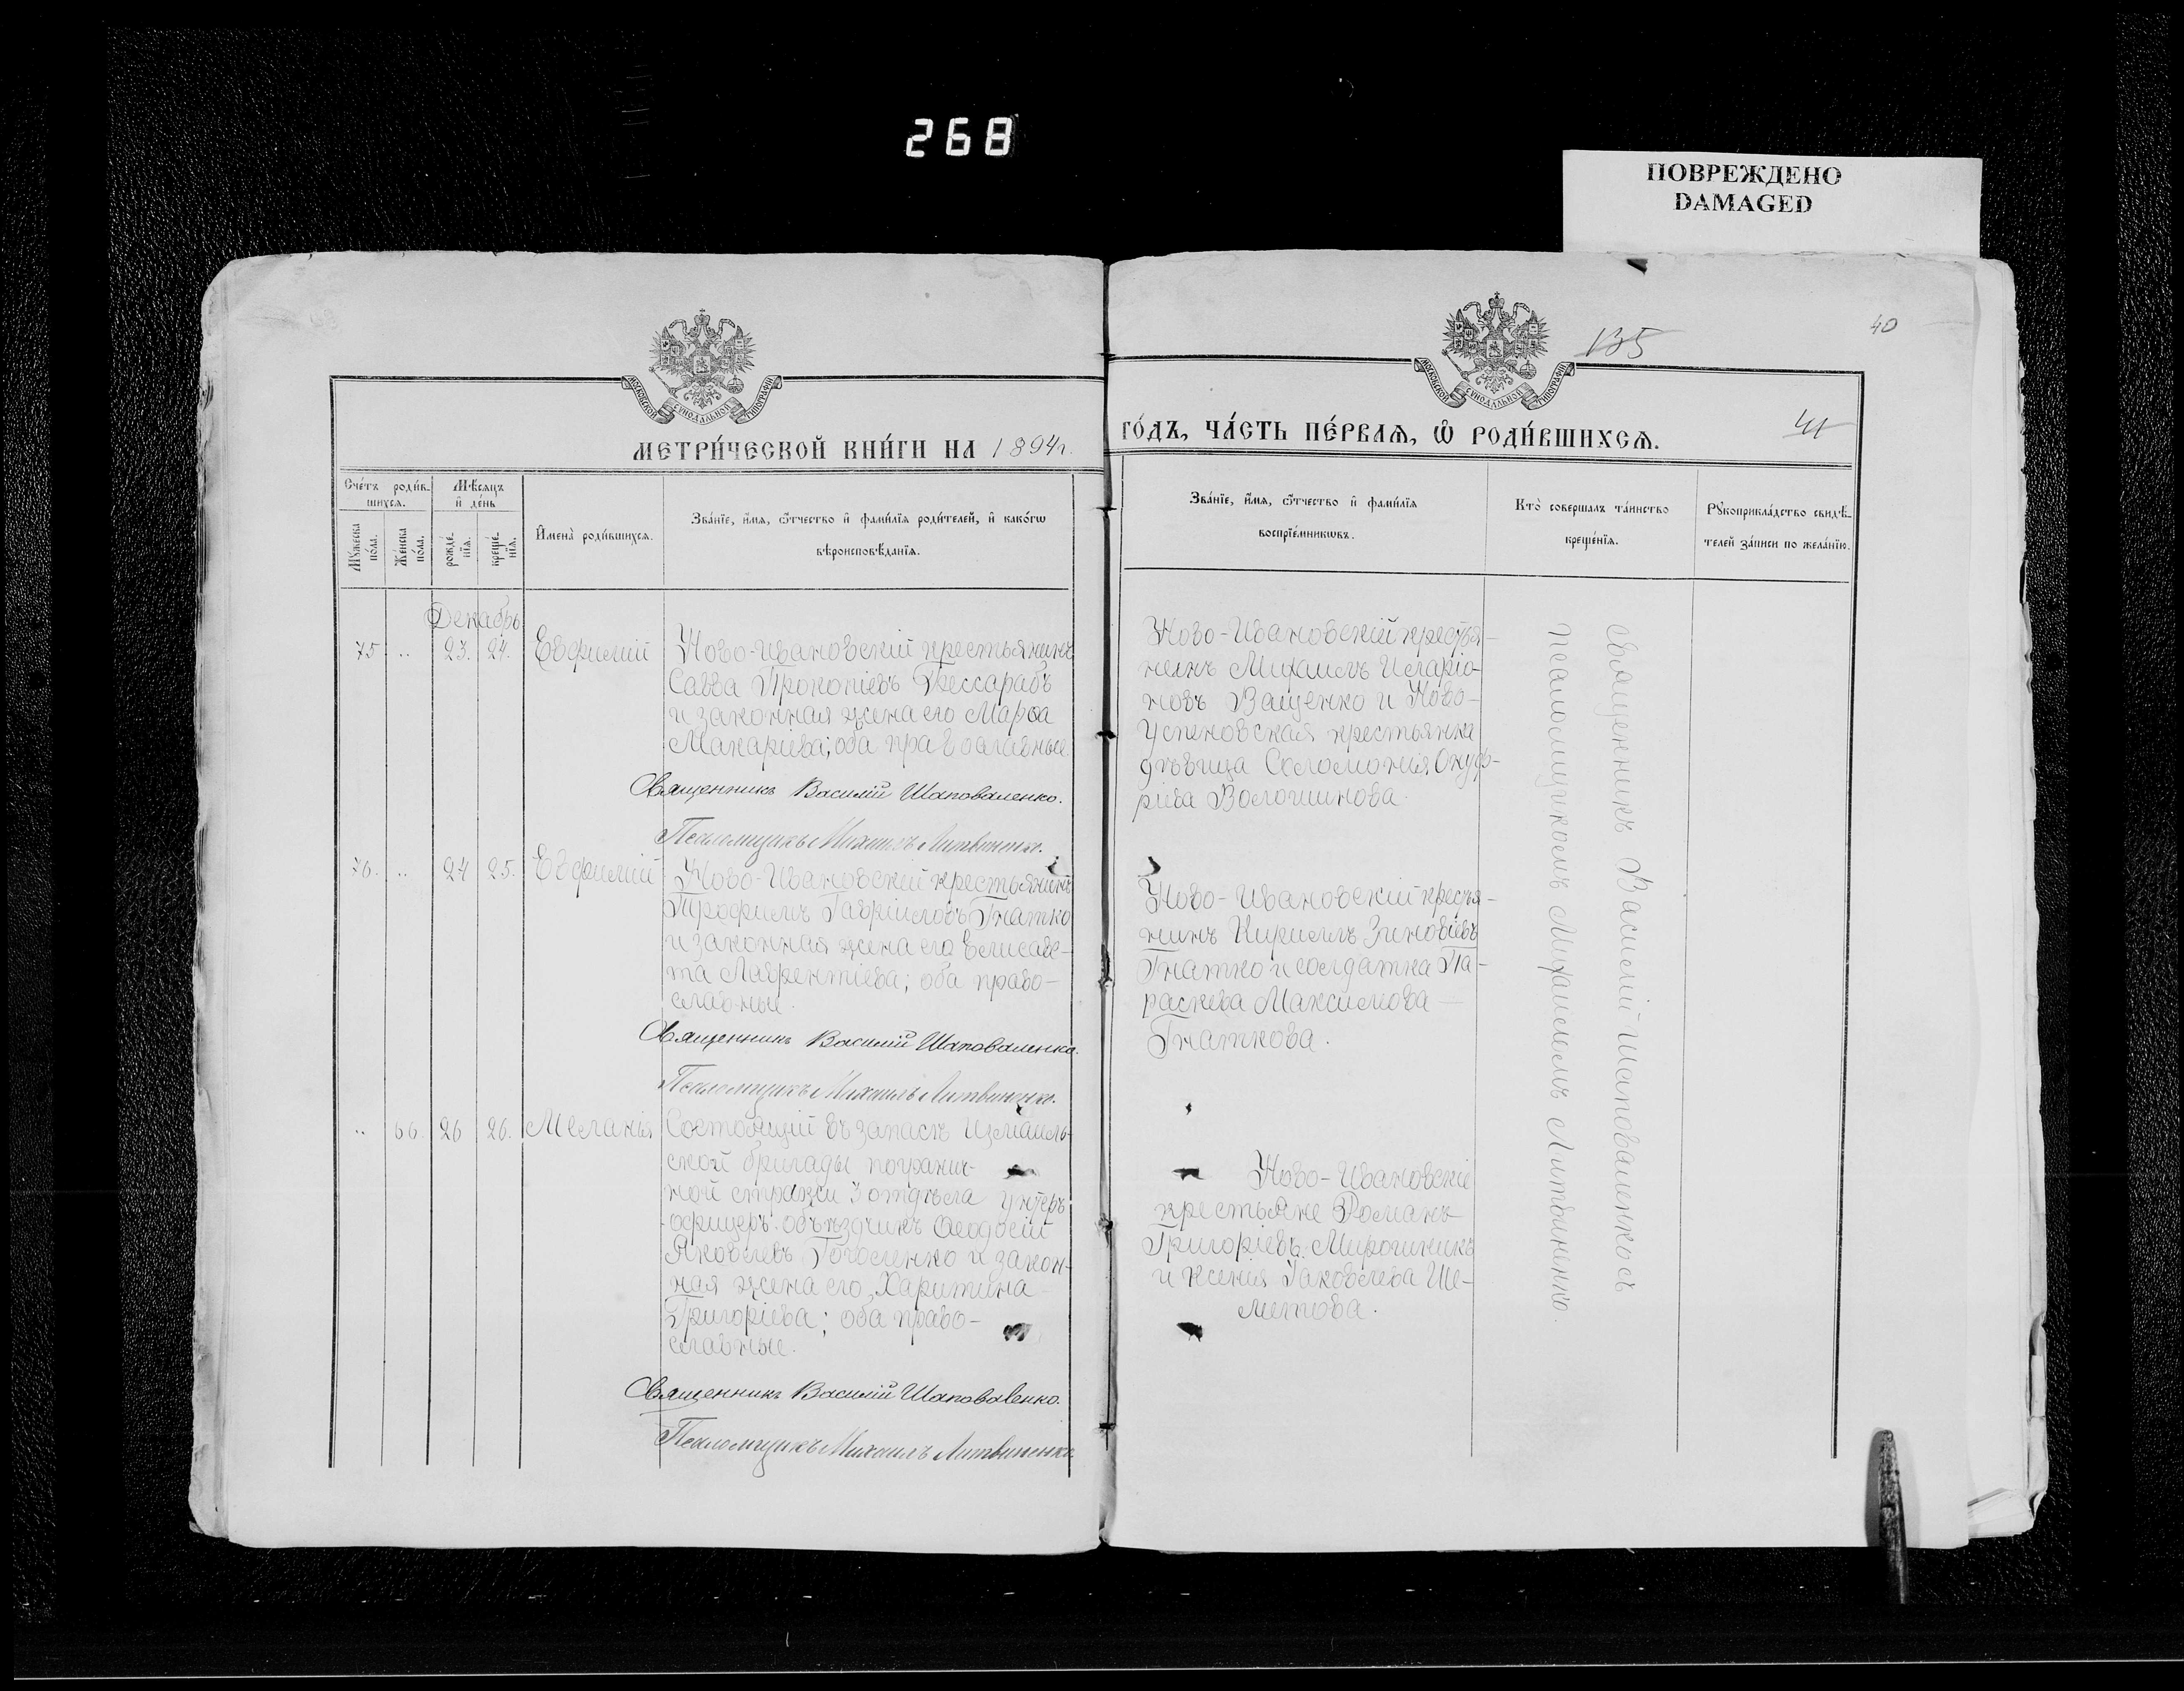 268
ПОВРЕЖДЕНО
DAMAGED
135
40
41
МОСКОВСКОЙ СѴНОДАЛЬНОЙ ТИПОГРАФІИ
МОСКОВСКОЙ СѴНОДАЛЬНОЙ ТИПОГРАФІИ
МЕТРИ́ЧЕСКОЙ КНИ́ГИ НА 1894 г.
ГО́ДЪ, ЧА́СТЬ ПЕ́РВАѦ, Ѡ҆ РОДИ́ВШИХСѦ.
Сче́тъ роди́в-
шихсѧ.
Мꙋ́жеска
по́ла.
Же́нска
по́ла.
Мѣ́сѧцъ
и҆ де́нь
рожде́-
нїѧ.
креще́-
нїѧ.
И҆мена̀ роди́вшихсѧ.
Зва́нїе, и҆́мѧ, ѻ҆́тчество и҆ фами́лїѧ роди́телей, и҆ како́гѡ
вѣроисповѣ́данїѧ.
Зва́нїе, и҆́мѧ, ѻ҆́тчество и҆ фами́лїѧ
воспрїе́мникѡвъ.
Кто̀ соверша́лъ та́инство
креще́нїѧ.
Рꙋкоприкла́дство свидѣ́-
телей за́писи по жела́нїю.
Декабрь
75 .. 23. 24. Евфимій
Ново-Ивановскій крестьянинъ
Савва Прокопіевъ Бессарабъ
и законная жена его Марѳа
Макаріева; оба православные
Священникъ Василій Шаповаленко.
Псаломщикъ Михаилъ Литвиненко.
Ново-Ивановскій крестья-
нинъ Михаилъ Иларіо-
новъ Ващенко и Ново-
Успеновская крестьянка
дѣвица Соломонія Онуф-
ріева Волошинова.
76. .. 24 25. Евфимій
Ново-Ивановскій крестьянинъ
Трофимъ Гавріиловъ Гнатко
и законная жена его Елисаве-
та Лаврентіева; оба право-
славные.
Священникъ Василій Шаповаленко.
Псаломщикъ Михаилъ Литвиненко.
Ново-Ивановскій крестья-
нинъ Кириллъ Зиновіевъ
Гнатко и солдатка Па-
раскева Максимова
Гнаткова.
.. 66. 26 26. Меланія
Состоящій въ запасѣ Измаиль-
ской бригады погранич-
ной стражи 3 отдѣла унтеръ-
офицеръ-объѣздчикъ Ѳеодосій
Яковлевъ Гоголенко и закон-
ная жена его, Харитина
Григоріева; оба право-
славные.
Священникъ Василій Шаповаленко.
Псаломщикъ Михаилъ Литвиненко.
Ново-Ивановскіе
крестьяне Романъ
Григоріевъ Мирошникъ
и Ксенія Іаковлева Ше-
метова.
Священникъ Василій Шаповаленко съ
псаломщикомъ Михаиломъ Литвиненко.